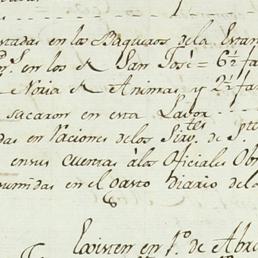 tadas en los Baqueros de la Estan
en los de San Jose = 6 1/2 fa
Noria de Animas y 2 1/2 fa
sacaron en esta Lavor
das en Raciones de los Sirvtes de S.n
en sus cuentas à los Oficiales Obr
sumidas en el Gasto Diario de la
Existen en 1.o de Abr